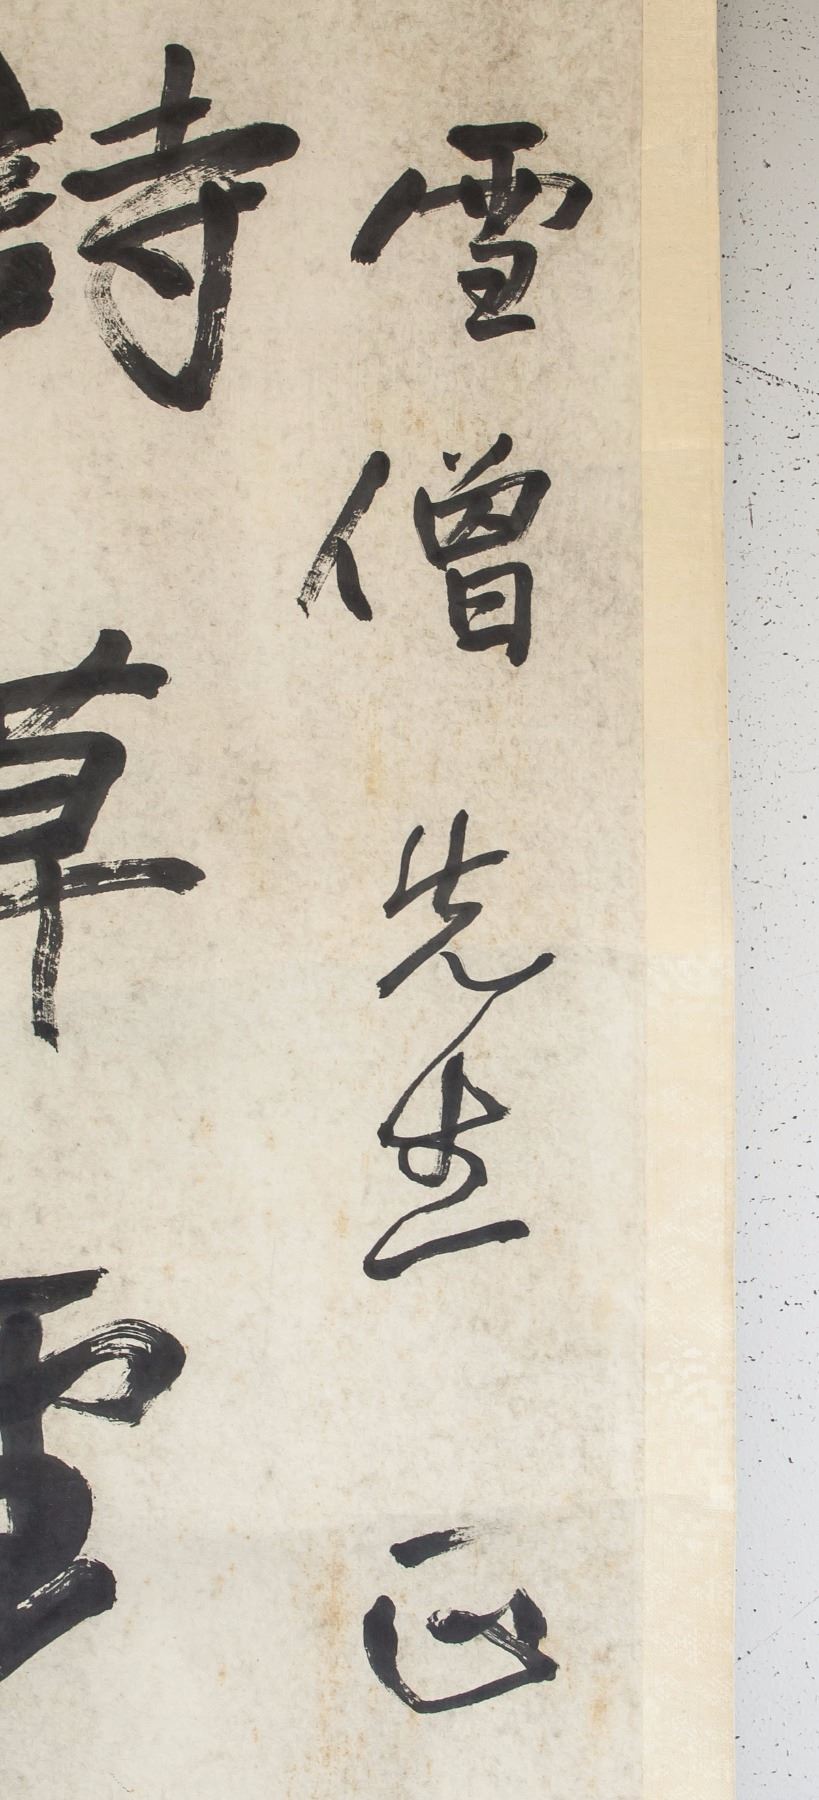 雪僧先生正
詩草堂